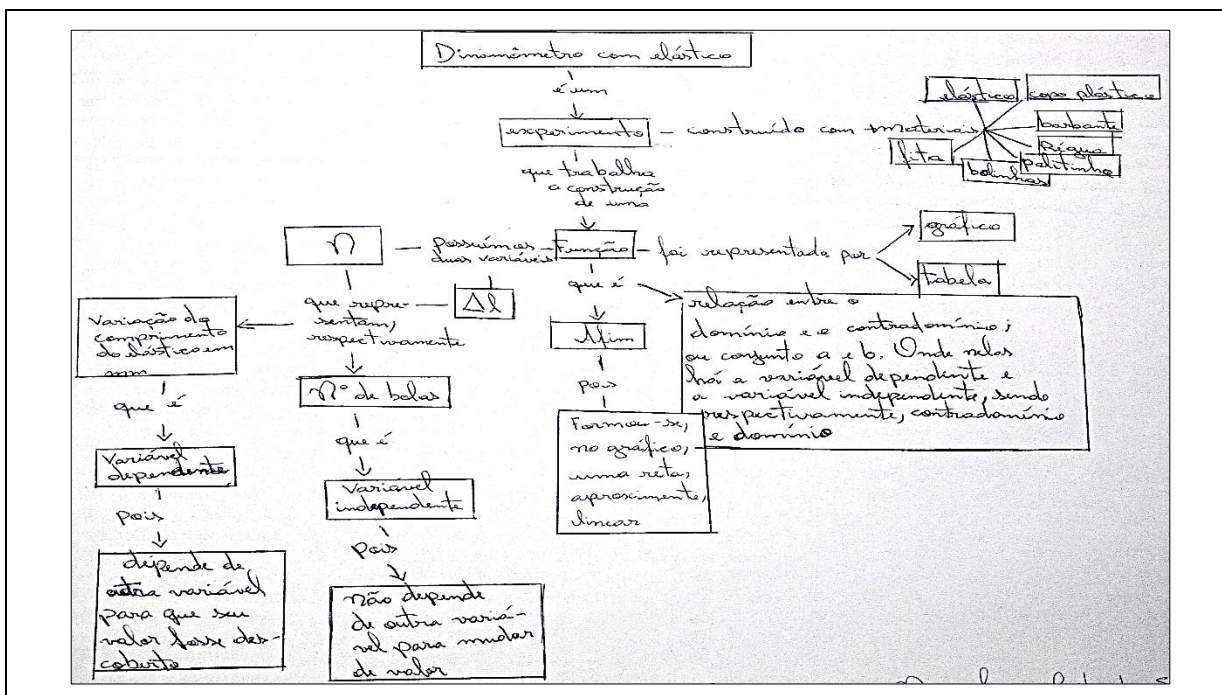 Dinamômetro com elástico
é um
experimento
construído com materiais
elástico
copo plástico
barbante
Régua
palitinho
bolinhas
fita
que trabalha
a construção
de uma
Função
possuímos
duas variáveis
n
Δl
que repre-
sentam,
respectivamente
Variação do
comprimento
do elástico em
mm
que é
Variável
dependente
pois
depende de
outra variável
para que seu
valor fosse des-
coberto
Nº de bolas
que é
Variável
independente
pois
não depende
de outra variá-
vel para mudar
de valor
foi representada por
gráfico
tabela
que é
Afim
pois
Formou-se,
no gráfico,
uma reta,
aproximente,
linear
relação entre o
domínio e o contradomínio;
ou conjunto a e b. Onde nelas
há a variável dependente e
a variável independente, sendo
respectivamente, contradomínio
e domínio